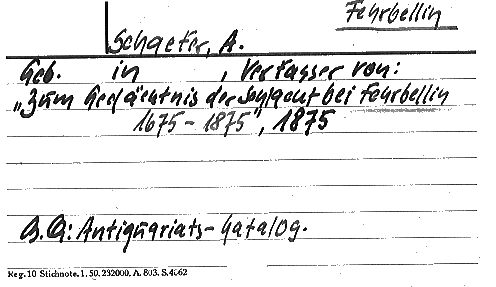 Fehrbellin
Schaefer, A.
Geb. in , Verfasser von:
„Zum Gedächtnis der Schlacht bei Fehrbellin
1675 - 1875", 1875
B.Q: Antiquariats-Katalog.
Reg. 10 Stichnote. 1. 50. 232000. A. 803. S. 4662